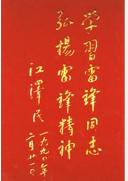 学習雷锋同志
弘揚雷锋精神
江澤民
一九九〇年
二月廿二日